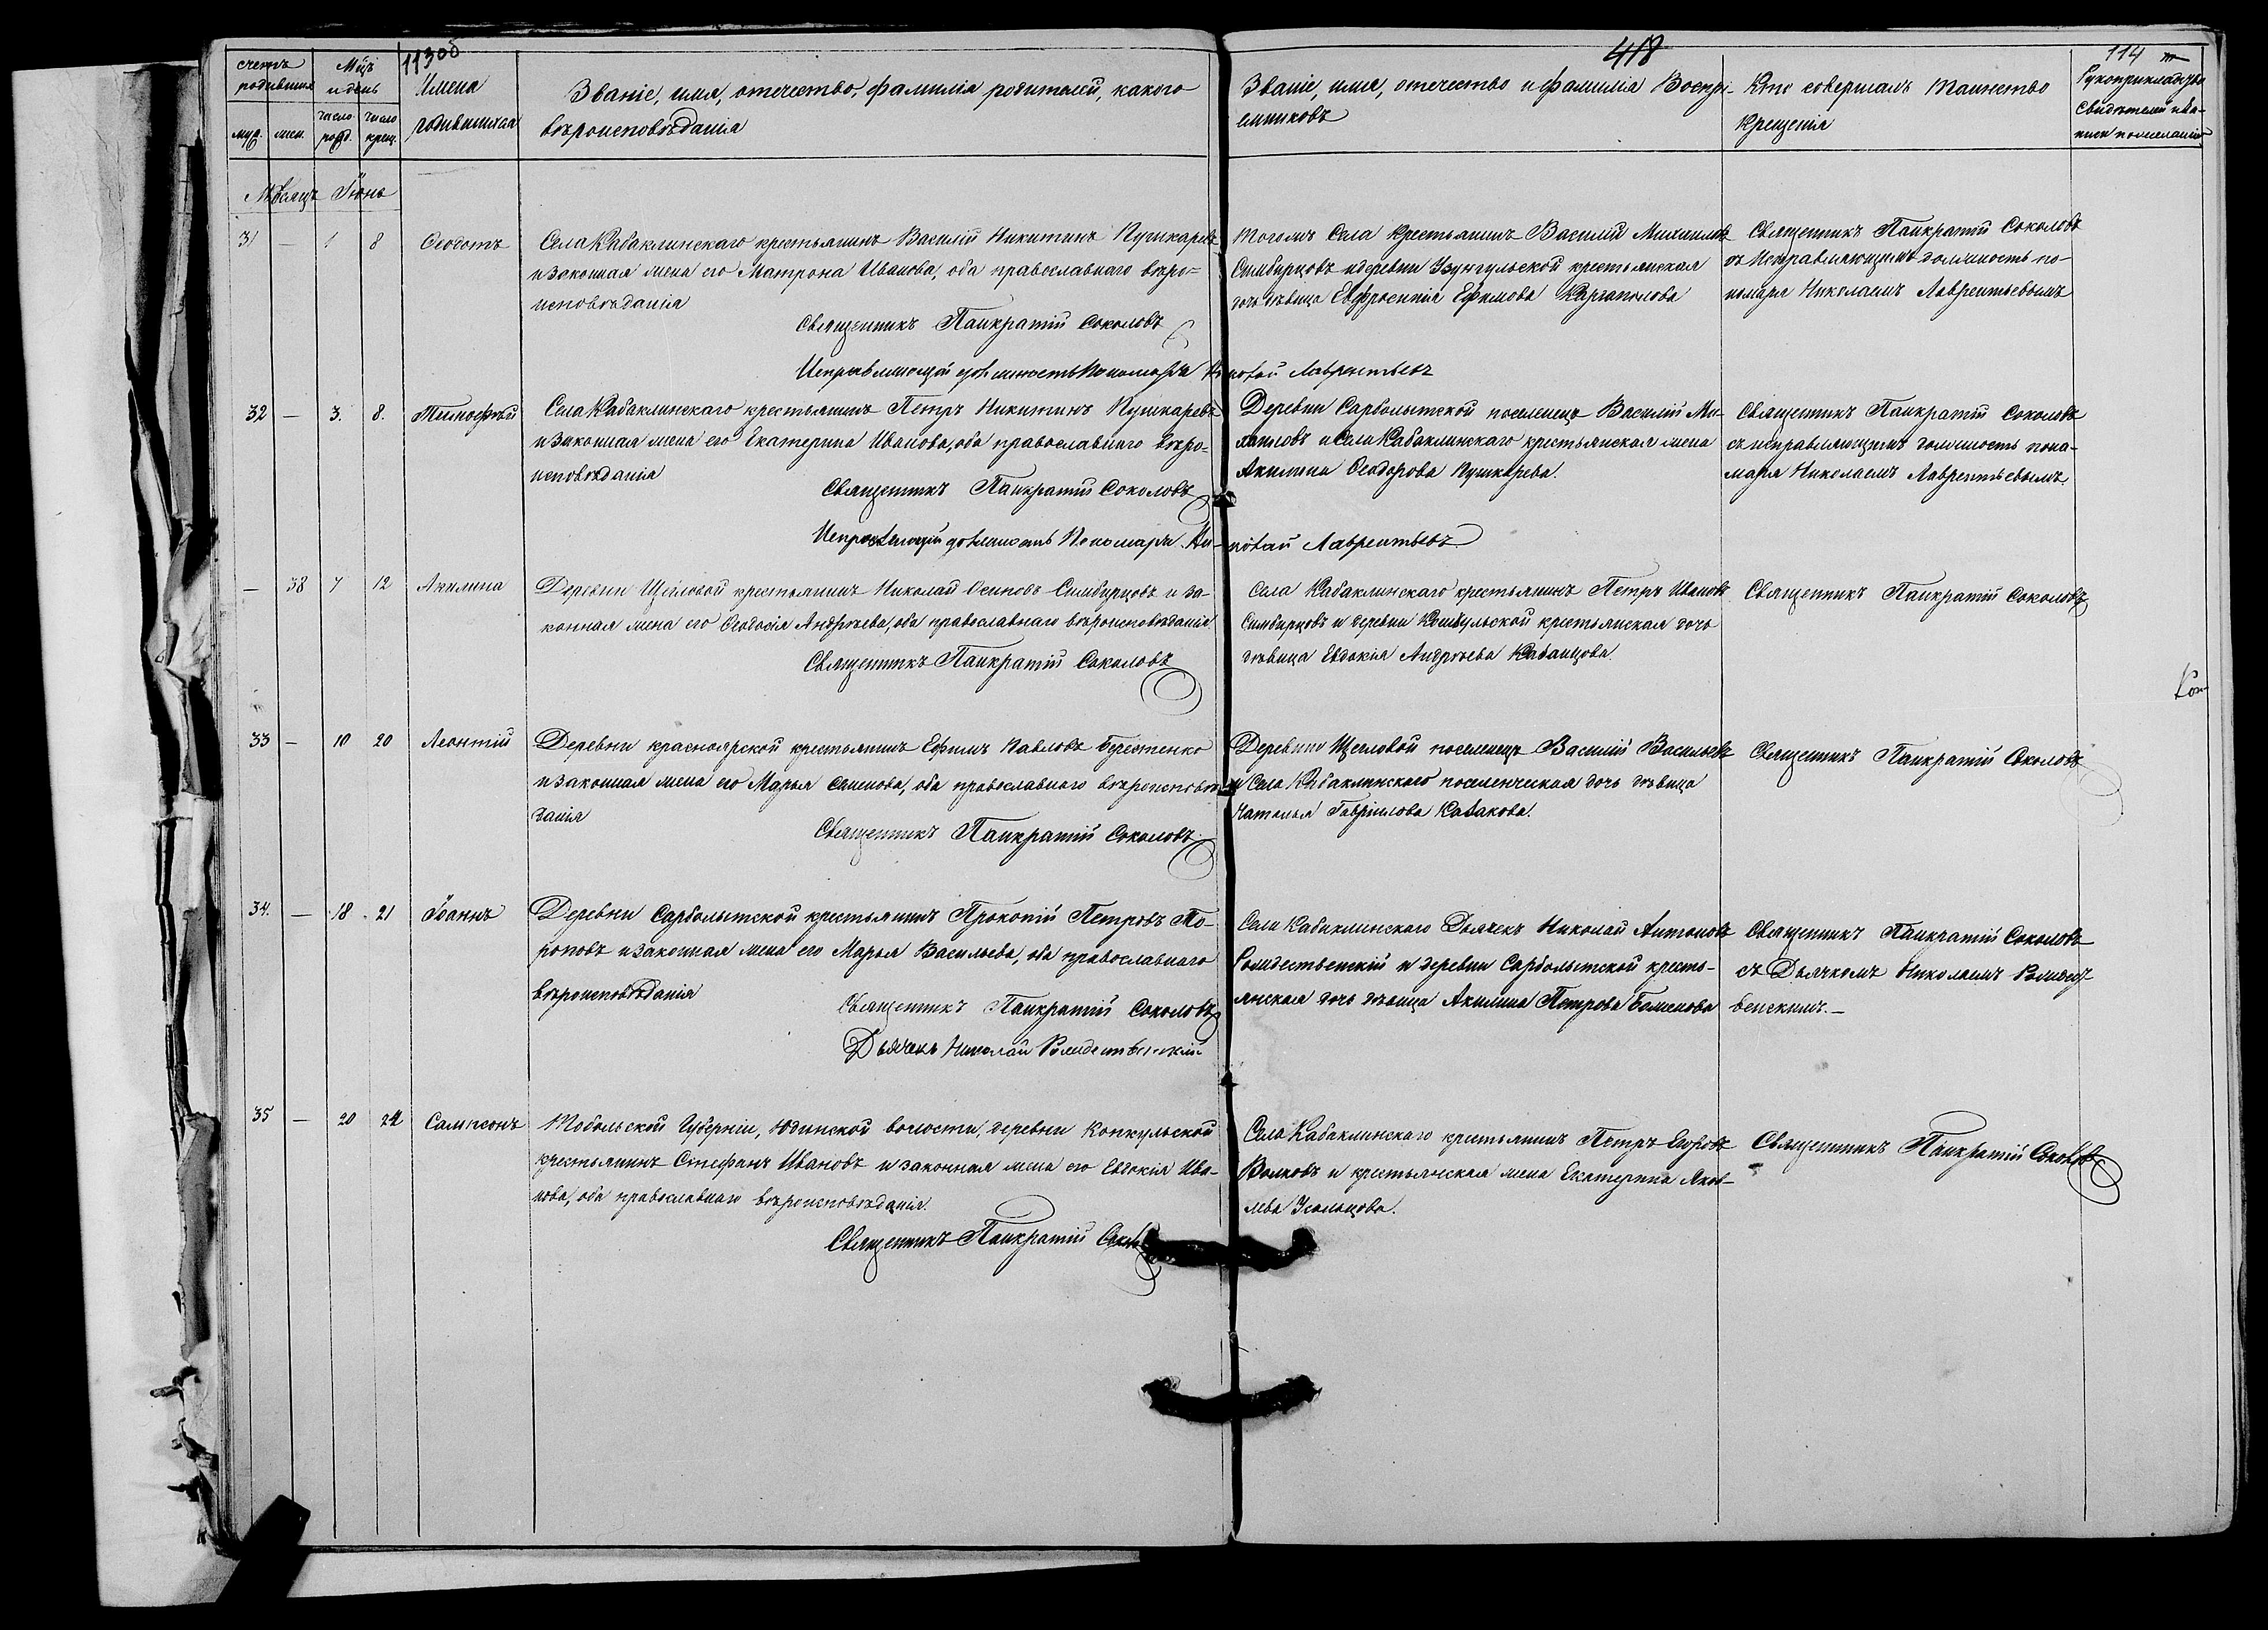 113об
418
114
счетъ родившихся
Мѣсъ и день
Имена родившихся
Званіе, имя, отечество, фамилія родителей, какого
вѣроисповѣданія
Званіе, имя, отечество и фамилія Воспрі-
емниковъ
Кто совершалъ таинство
Крещенія
Рукоприкладство
свидѣтелей
муж. жен. число рожд. число крещ.
Мѣсяцъ Іюнь
31 — 1 8 Ѳеодотъ
Села Кабаклинскаго крестьянинъ Василій Никитинъ Пушкаревъ
и законная жена его Матрона Иванова, оба православнаго вѣро=
исповѣданія
Священникъ Панкратій Соколовъ
Исправляющій должность Пономаря Николай Лаврентьевъ
Тогожъ Села Крестьянинъ Василій Михаиловъ
Симбирцовъ и деревни Узунгульской крестьянская
дочь дѣвица Евфросинія Ефимова Каргаполова
Священникъ Панкратій Соколовъ
съ Исправляющимъ должность по-
номаря Николаемъ Лаврентьевымъ
32 — 3. 8. Тимофѣй
Села Кабаклинскаго крестьянинъ Петръ Никитинъ Пушкаревъ
и законная жена его Екатерина Иванова, оба православнаго вѣро=
исповѣданія
Священникъ Панкратій Соколовъ
Исправляющій должность Пономаря Николай Лаврентьевъ
Деревни Сарболытской поселенецъ Василій Ми-
хаиловъ и Села Кабаклинскаго крестьянская жена
Акилина Ѳеодорова Пушкарева.
Священникъ Панкратій Соколовъ
съ исправляющимъ должность пона-
маря Николаемъ Лаврентьевымъ.
— 38 7 12 Акилина
Деревни Щегловой крестьянинъ Николай Осиповъ Симбирцовъ и за-
конная жена его Ѳеодосія Андрѣева, оба православнаго вѣроисповѣданія
Священникъ Панкратій Соколовъ
Села Кабаклинскаго крестьянинъ Петръ Ивановъ
Симбирцовъ и деревни крестьянская дочь
дѣвица Евдокія Андрѣева Кабанцова.
Священникъ Панкратій Соколовъ
33 — 10 20 Леонтій
Деревни красноярской крестьянинъ Ефимъ Павловъ Берестенко
и законная жена его Марья Семенова, оба православнаго вѣроисповѣ-
данія
Священникъ Панкратій Соколовъ.
Деревни Щегловой поселенецъ Василій Васильевъ
и Села Кабаклинскаго поселенческая дочь дѣвица
Наталья Гаврилова Казакова.
Священникъ Панкратій Соколовъ
34. — 18 21 Іоаннъ
Деревни Сарболытской крестьянинъ Прокопій Петровъ То-
роповъ и законная жена его Марья Васильева, оба православнаго
вѣроисповѣданія
Священникъ Панкратій Соколовъ
Дьячекъ Николай Рождественскій
Села Кабаклинскаго Дьячекъ Николай Антоновъ
Рождественскій и деревни Сарболытской кресть-
янская дочь дѣвица Акилина Петрова Баженова
Священникъ Панкратій Соколовъ
съ Дьячкомъ Николаемъ Рождест-
венскимъ.—
35 — 20 24 Сампсонъ
Тобольской Губерніи, Юдинской волости, деревни Копкульской
крестьянинъ Стефанъ Ивановъ и законная жена его Евдокія Ива-
нова, оба православнаго вѣроисповѣданія.
Священникъ Панкратій Соколовъ
Села Кабаклинскаго крестьянинъ Петръ Егоровъ
Волковъ и крестьянская жена Екатерина Яков-
лева Усольцова.
Священникъ Панкратій Соколовъ